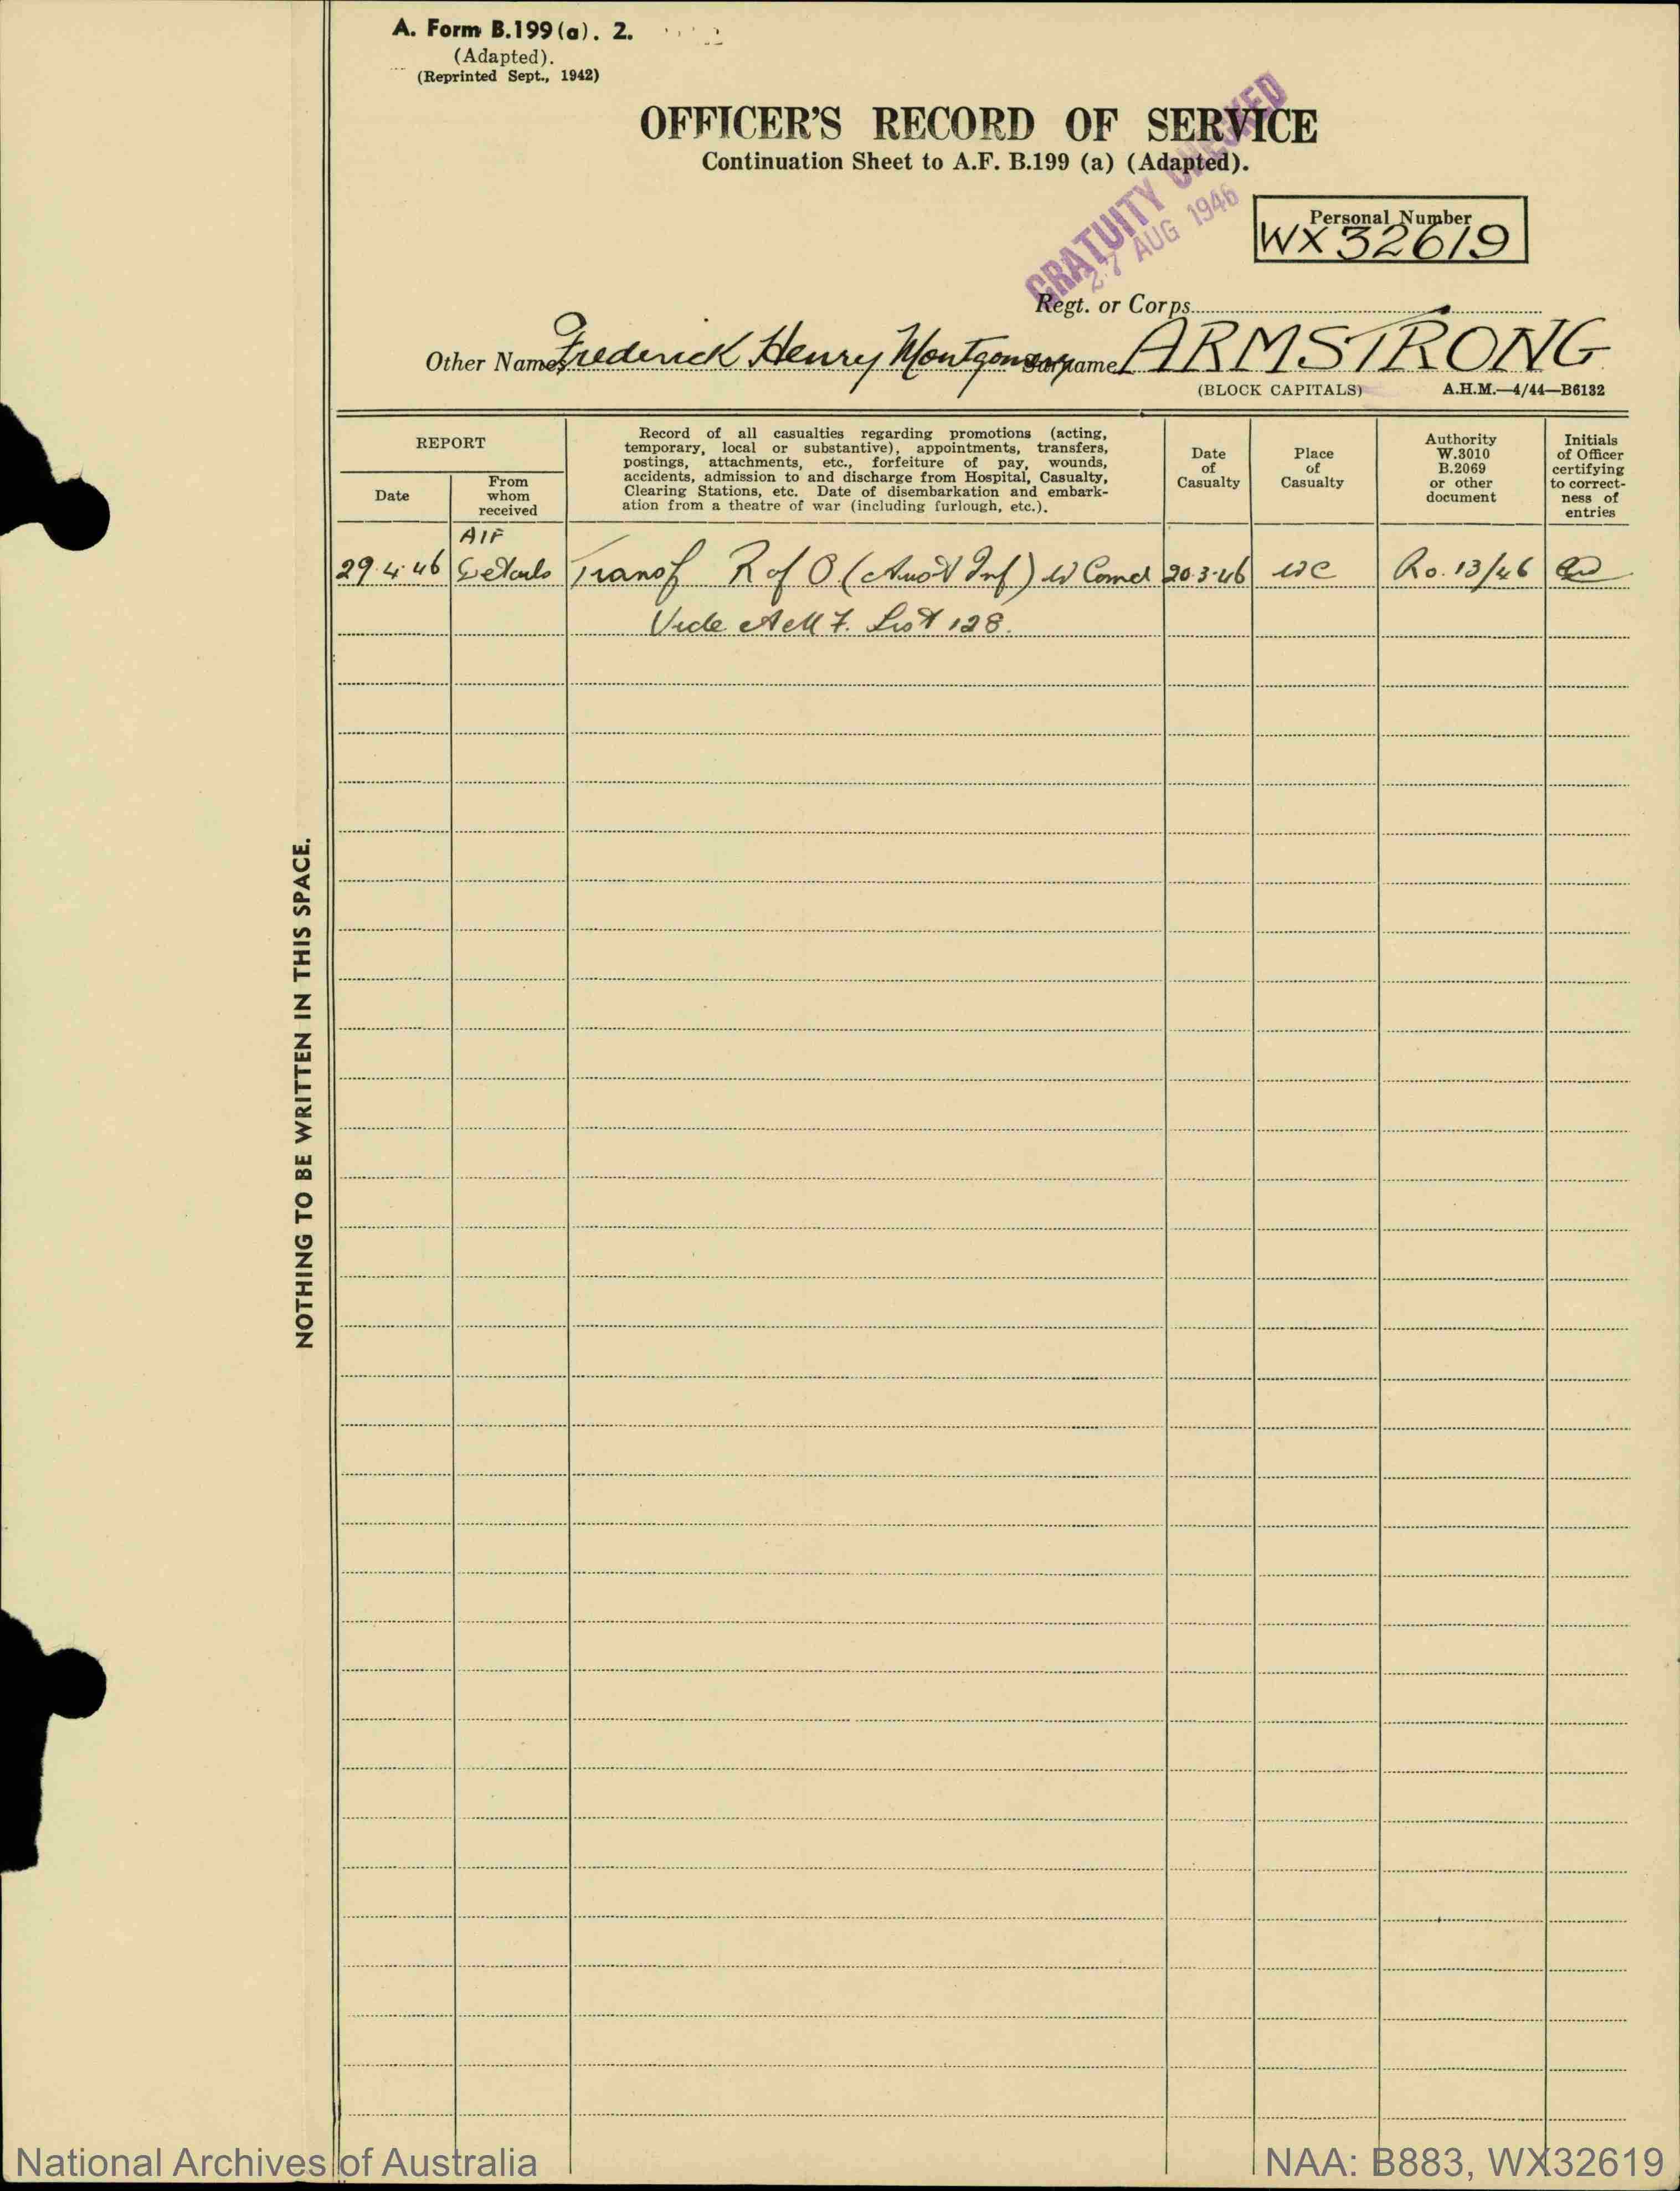 A. Form B.199(a). 2.
(Adapted).
(Reprinted Sept., 1942)
OFFICER'S RECORD OF SERVICE
Continuation Sheet to A.F. B.199 (a) (Adapted).
GRATUITY CHECKED
27 AUG 1946
Personal Number
WX 32619
Regt. or Corps
Other Names Frederick Henry Montgomery Surname ARMSTRONG
(BLOCK CAPITALS) A.H.M.—4/44—B6132
REPORT
Date
From
whom
received
Record of all casualties regarding promotions (acting,
temporary, local or substantive), appointments, transfers,
postings, attachments, etc., forfeiture of pay, wounds,
accidents, admission to and discharge from Hospital, Casualty,
Clearing Stations, etc. Date of disembarkation and embark-
ation from a theatre of war (including furlough, etc.).
Date
of
Casualty
Place
of
Casualty
Authority
W.3010
B.2069
or other
document
Initials
of Officer
certifying
to correct-
ness of
entries
AIF
29.4.46 Details Transf R of O (Aust Inf) W Comd 20.3.46 WC Ro. 13/46
Vide List 128.
NOTHING TO BE WRITTEN IN THIS SPACE.
National Archives of Australia NAA: B883, WX32619